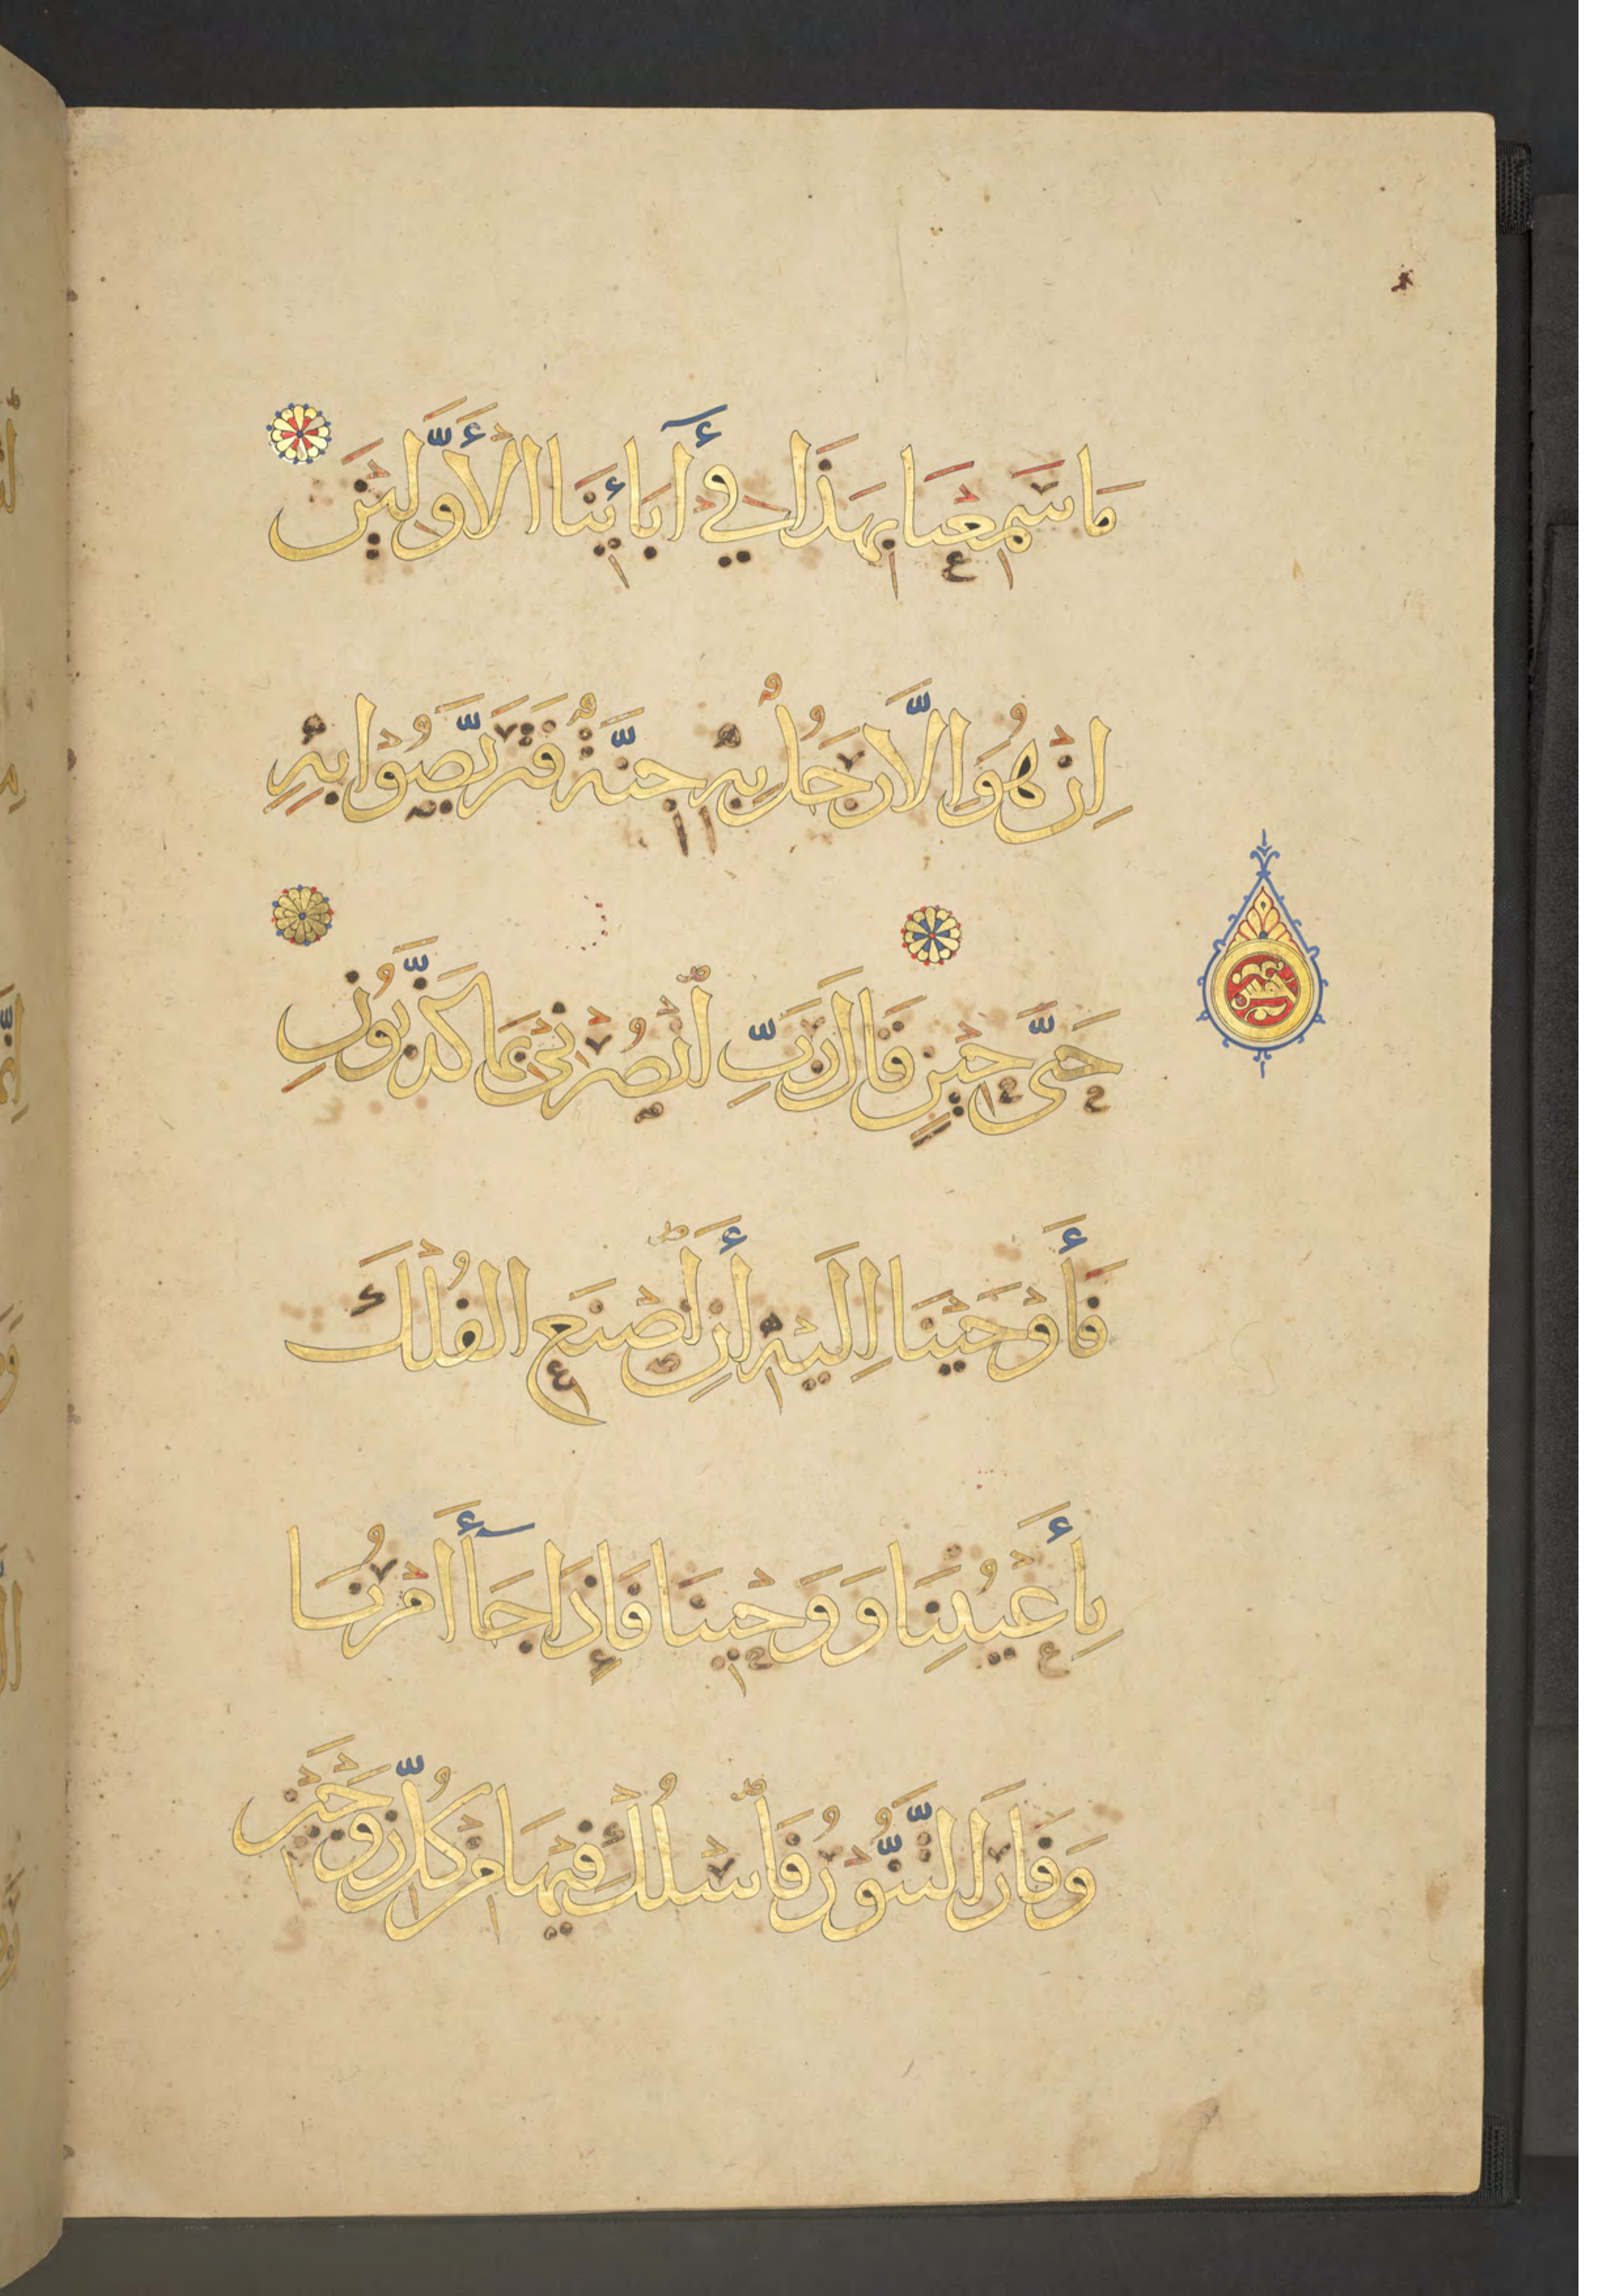 مَا سَمِعْنَا بِهَذَا فِي آبَائِنَا الْأَوَّلِيْنَ
اِنْ هُوَ اِلَّا رَجُلٌ بِهِ جِنَّةٌ فَتَرَبَّصُوْا بِهِ
حَتَّى حِيْنٍ قَالَ رَبِّ انْصُرْنِيْ بِمَا كَذَّبُوْنِ
فَأَوْحَيْنَا اِلَيْهِ أَنِ اصْنَعِ الْفُلْكَ
بِأَعْيُنِنَا وَوَحْيِنَا فَإِذَا جَآأَ أَمْرُنَا
وَفَارَ التَّنُّوْرُ فَاسْلُكْ فِيْهَا مِنْ كُلٍّ زَوْجَيْنِ